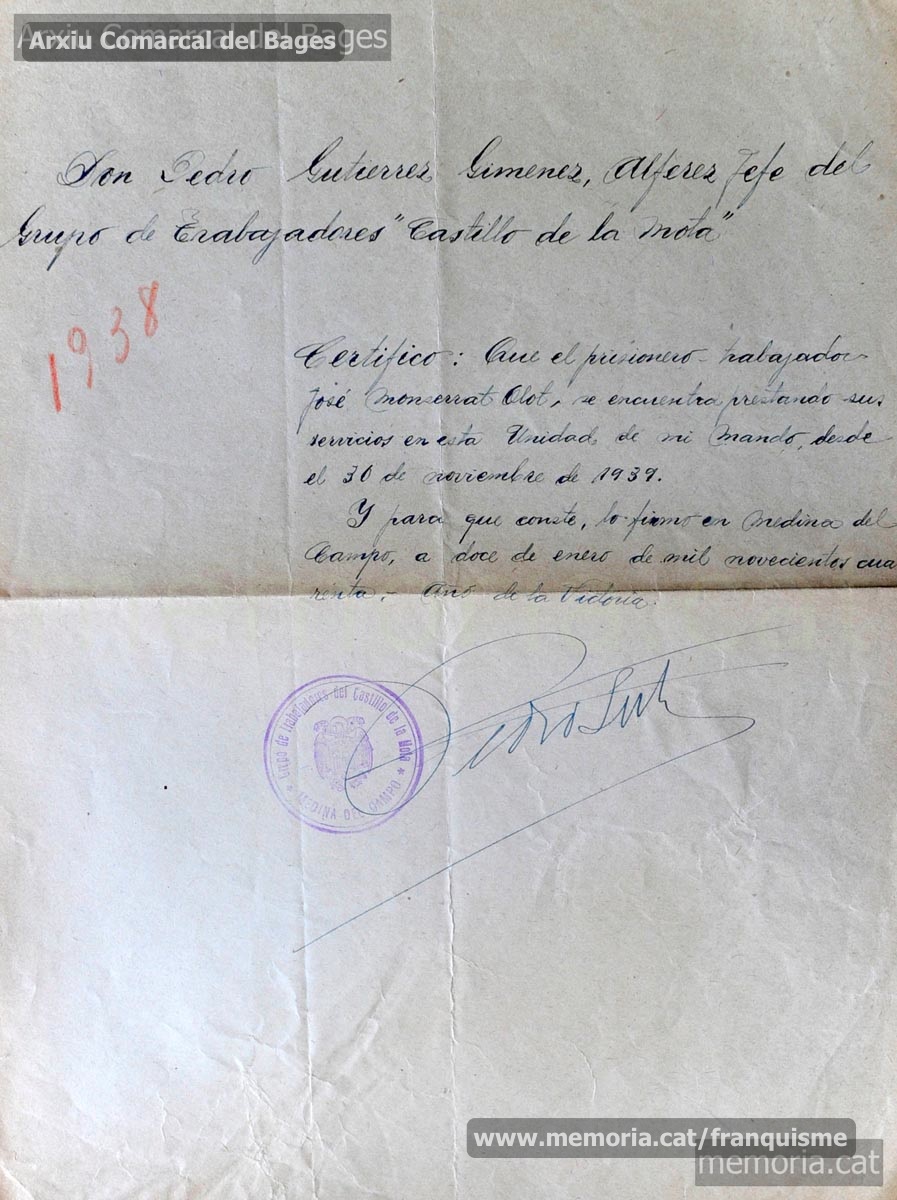 Arxiu Comarcal del Bages
Arxiu Comarcal del Bages
Don Pedro Gutierrez Gimenez, Alferez Jefe del
Grupo de Trabajadores "Castillo de la Mota"
1938
Certifico: Que el prisionero-trabajador
José Monserrat Olot, se encuentra prestando sus
servicios en esta Unidad de mi mando, desde
el 30 de noviembre de 1939.
Y para que conste, lo firmo en Medina del
Campo, a doce de enero de mil novecientos cua
renta.- Año de la Victoria.
Grupo de Trabajadores del Castillo de la Mota
* MEDINA DEL CAMPO *
Pedro Gut
www.memoria.cat/franquisme
memoria.cat